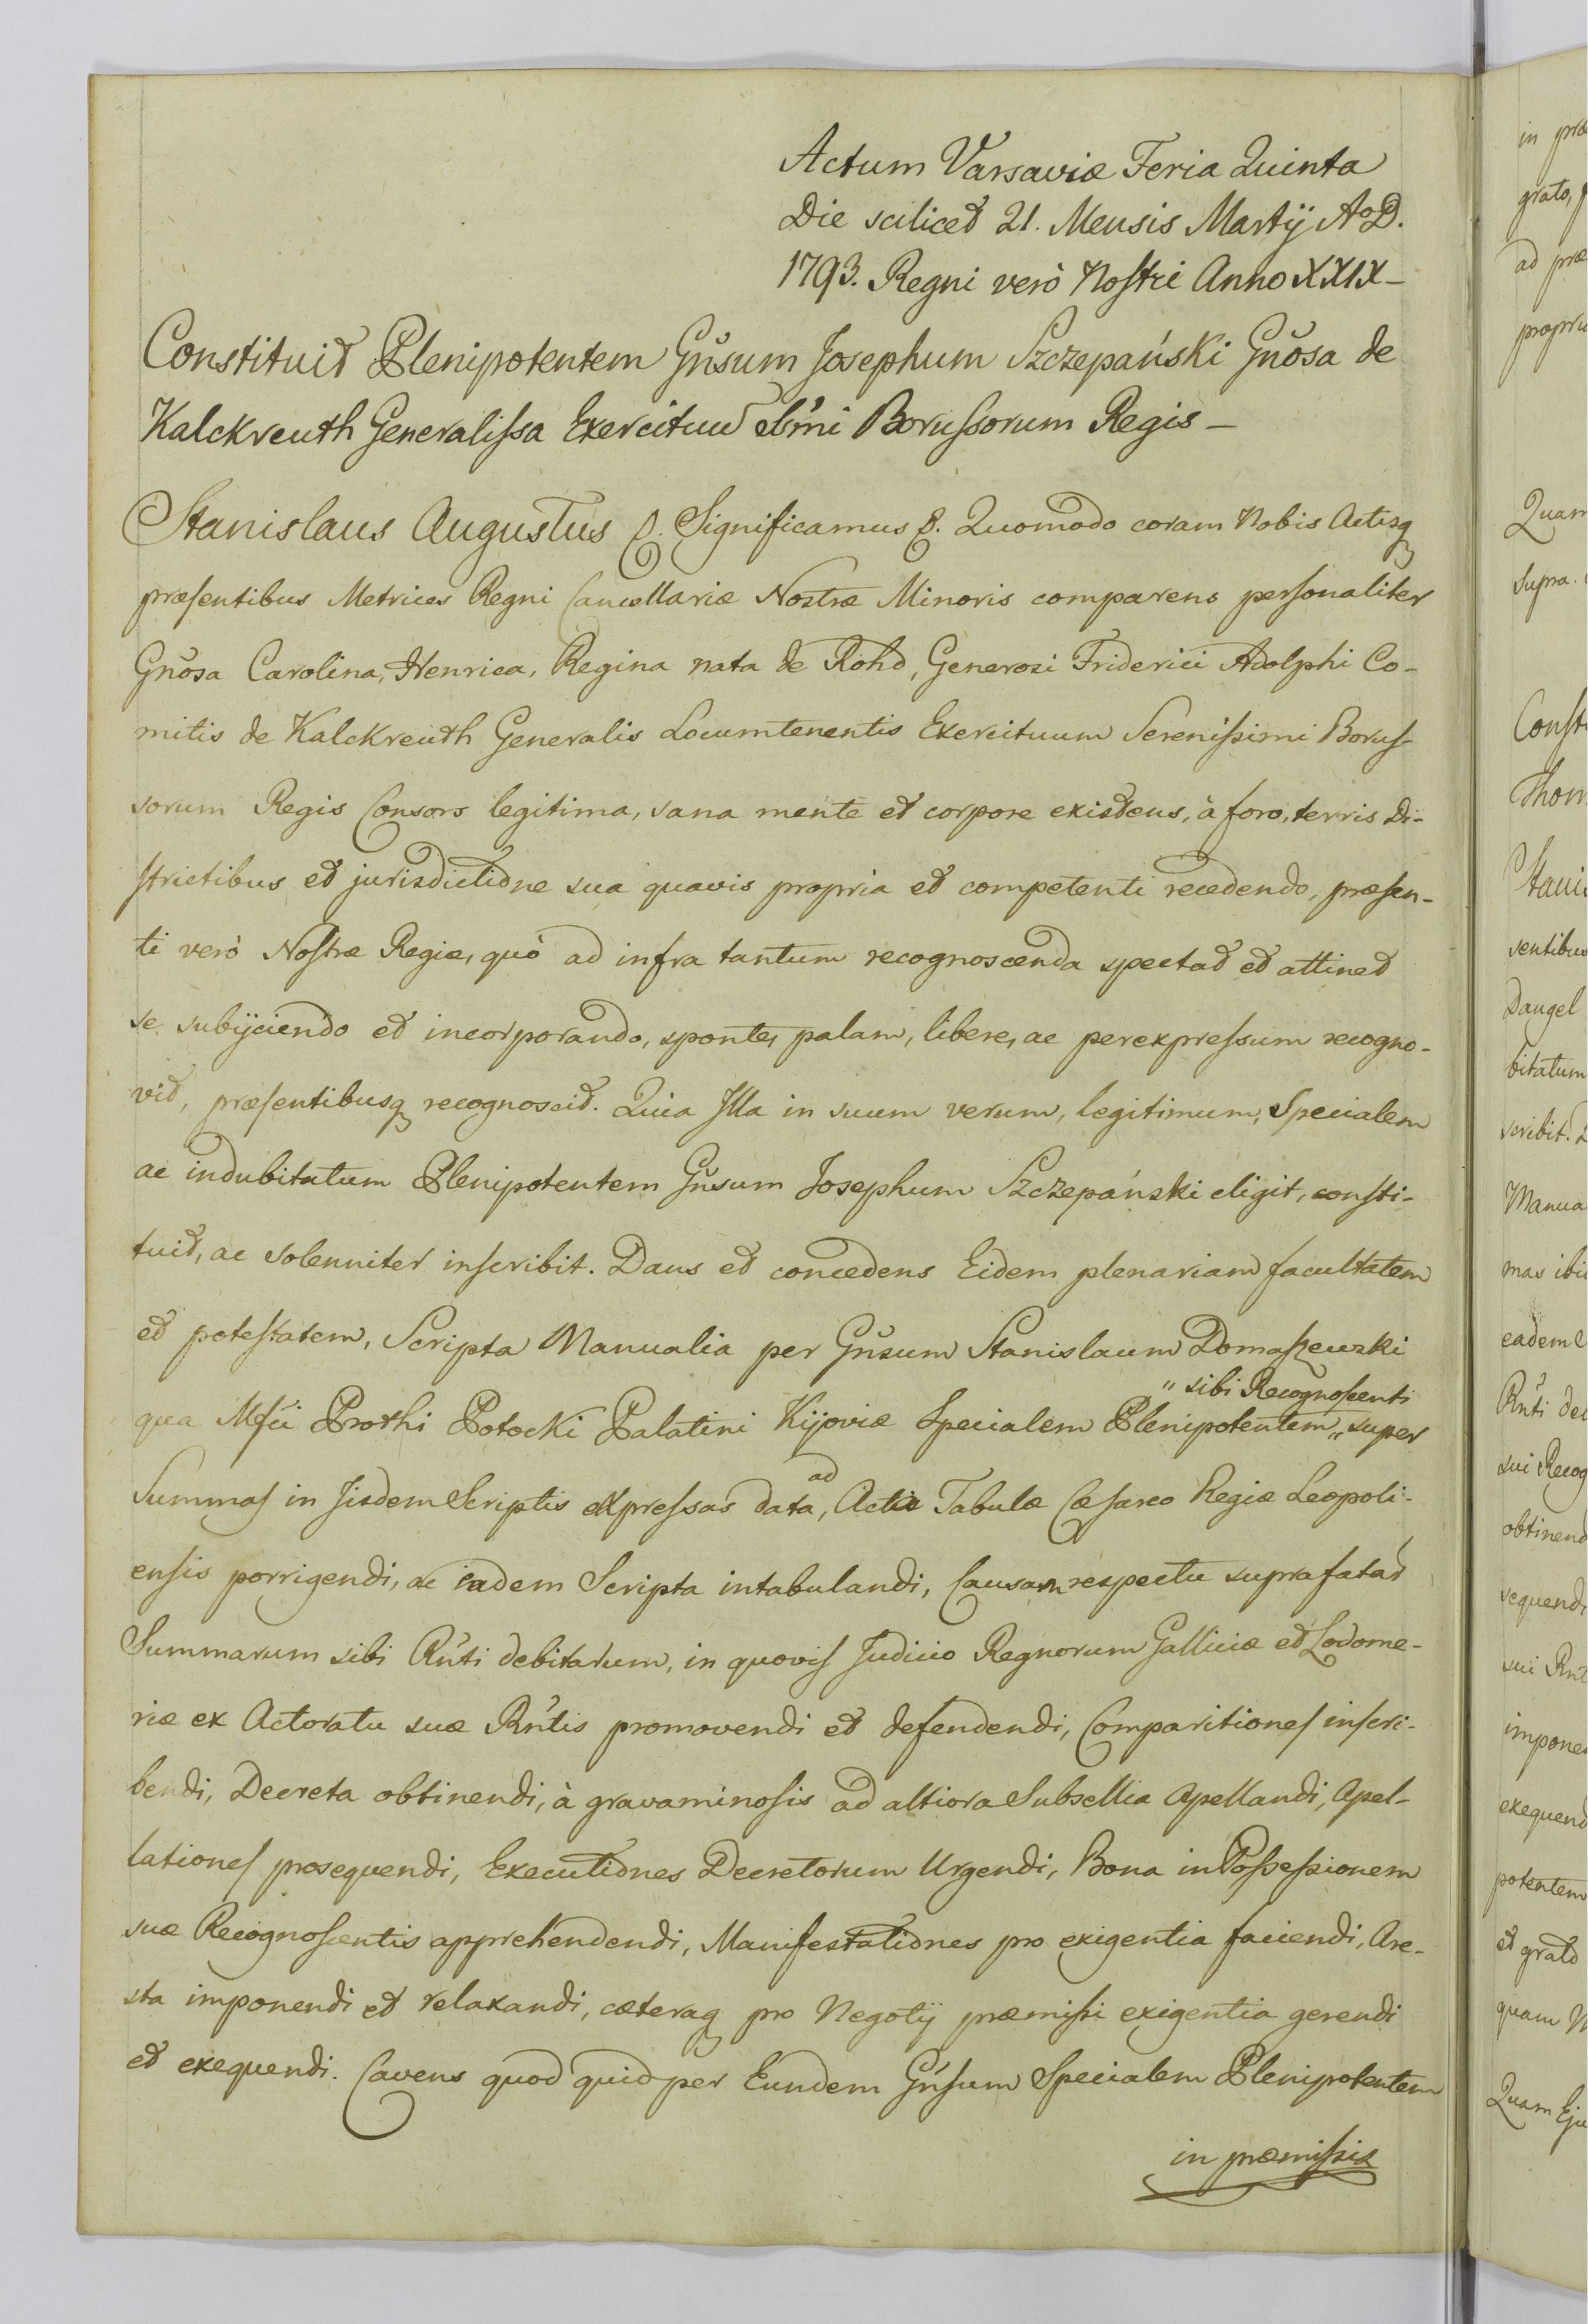 Actum Varsaviæ Feria Quinta
Die scilicet 21. Mensis Martij Aº D.
1793. Regni verò Nostri Anno XXIX–
Constituit Plenipotentem Gñsum Josephum Szczepański Gñosa de
Kalckreuth Generalissa Exercituu Sermi Borussorum Regis –
Stanislaus Augustus Significamus Quomodo coram Nobis Actisq
præsentibus Metrices Regni Cancellariæ Nostræ Minoris comparens personaliter
Gñosa Carolina, Henrica, Regina nata de Rohd, Generosi Friderici Adolphi Co-
mitis de Kalckreuth Generalis Locumtenentis Exercituum Serenissimi Borus-
sorum Regis Consors legitima, sana mente et corpore existens, à foro, terris Di-
strictibus et jurisdictione sua quavis propria et competenti recedendo, præsen-
ti verò Nostræ Regiæ, quò ad infra tantum recognoscenda spectat et attinet
se subijciendo et incorporando, sponte, palam, libere, ac per expressum recogno-
vit, præsentibusq recognoscit. Quia Illa in suum verum, legitimum, Specialem
ac indubitatum Plenipotentem Gñsum Josephum Szczepański eligit, consti-
tuit, ac solenniter inscribit. Dans et concedens Eidem plenariam facultatem
et potestatem, Scripta Manualia per Gñsum Stanislaum Domaszewski
" sibi Recognoscenti
qua Mfci Prothi Potocki Palatini Kijoviæ Specialem Plenipotentem " super
Summas in Jisdem Scriptis expressas data, ad Acta Tabulæ Cæsareo Regiæ Leopoli-
ensis porrigendi, ac eadem Scripta intabulandi, Causam respectu suprafatar
Summarum sibi Rñti debitarum, in quovis Judicio Regnorum Galliciæ et Lodome-
riæ ex Actoratu suæ Rñtis promovendi et defendendi, Comparitiones inscri-
bendi, Decreta obtinendi, à gravaminosis ad altiora Subsellia Apellandi, Apel-
lationes prosequendi, Executiones Decretorum Urgendi, Bona in Possessionem
suæ Recognoscentis apprehendendi, Manifestationes pro exigentia faciendi, Are-
sta imponendi et relaxandi, cæteraq pro Negotij præmissi exigentia gerendi
et exequendi. Cavens quod quid per Eundem Gñsum Specialem Plenipotentem
in præmissis